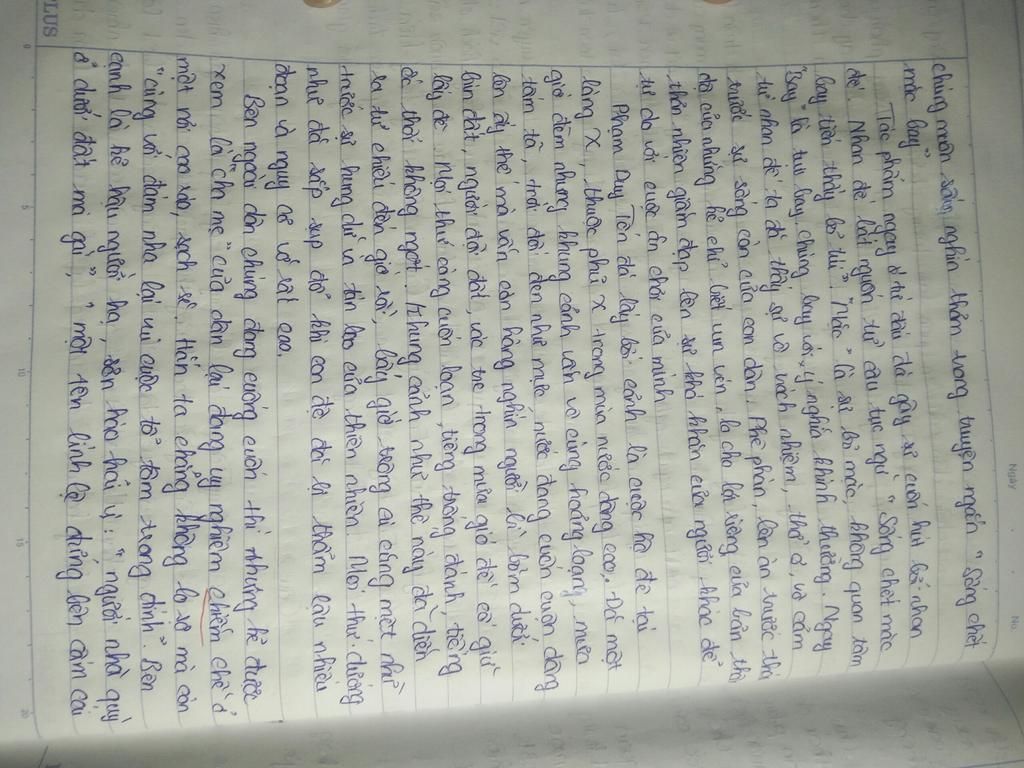 chúng muôn sống nghìn thảm trong truyện ngắn "sống chết
mặc bay"
Tác phẩm ngay từ đầu đã gây sự cuốn hút bởi nhan
đề. Nhan đề bắt nguồn từ câu tục ngữ "Sống chết mặc
bay tiền thầy bỏ túi". "Mặc" là sự bỏ mặc, không quan tâm
"Bay" là tụi bay, chúng bay với ý nghĩa khinh thường. Ngay
từ nhan đề ta đã thấy sự vô trách nhiệm, thờ ơ, vô cảm
trước sự sống còn của con dân. Phê phán, lên án trước thái
độ của những kẻ chỉ biết vun vén, lo cho lợi riêng của bản thân
thản nhiên giẫm đạp lên sự khó khăn của người khác để
tự do với cuộc ăn chơi của mình
Phạm Duy Tốn đã lấy bối cảnh là cuộc hộ đê tại
làng X, thuộc phủ X trong mùa nước dâng cao. Đó một
giờ đêm nhưng khung cảnh vẫn vô cùng hoảng loạng, mưa
tầm tã, trời tối đen như mực nước đang cuồn cuộn dâng
lên ấy thế mà vẫn còn hàng nghìn người bì bõm dưới
bùn đất, người đội đất, vác tre trong mưa gió để cố giữ
lấy đê. Mọi thứ càng cuốn loạn, tiếng trống đánh, tiếng
ốc thổi không ngớt. Khung cảnh như thế này đã diễn
ra từ chiều đến giờ rồi, bấy giờ trông ai cũng mệt nhừ
trước sự hung dữ và tàn bạo của thiên nhiên. Mọi thứ dường
như đã sắp sụp đổ khi con đê đó bị thẩm lậu nhiều
đoạn và nguy cơ vỡ rất cao.
Bên ngoài dân chúng đang cuống cuồn thì những kẻ được
xem là "cha mẹ" của dân lại đang uy nghiêm chiếm chễ ở
một nơi cao ráo, sạch sẽ. Hắn ta chẳng những lo sợ mà còn
"cùng với đám nha lại vui cuộc tổ tôm trong đình". Bên
cạnh là kẻ hầu người hạ, sẵn hào hai ý: "người nhà quỳ
ở dưới đất mà gãi", "một tên lính lệ đứng bên cầm cái
PLUS
Ngày
No.
0
5
10
15
20